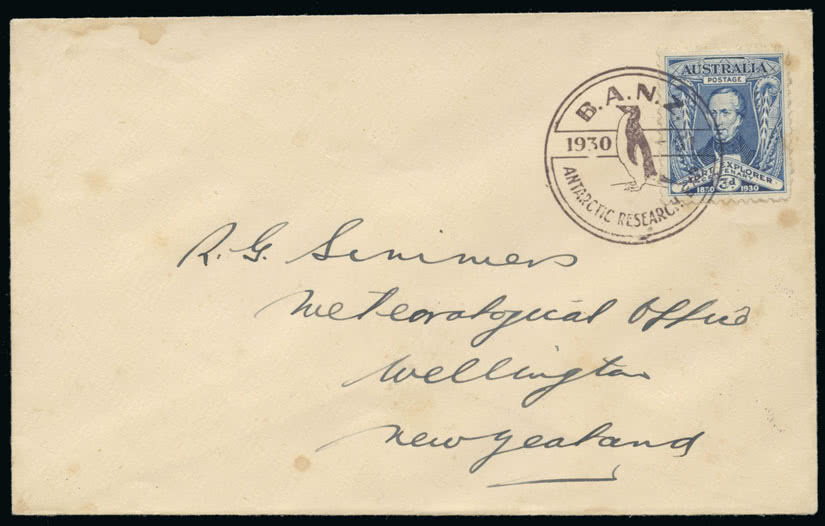 B.A.N.Z
1930
ANTARCTIC RESEARCH
AUSTRALIA
POSTAGE
EXPLORER
1830 3d 1930
R. G. Simmers
Meteorological Office
Wellington
New Zealand